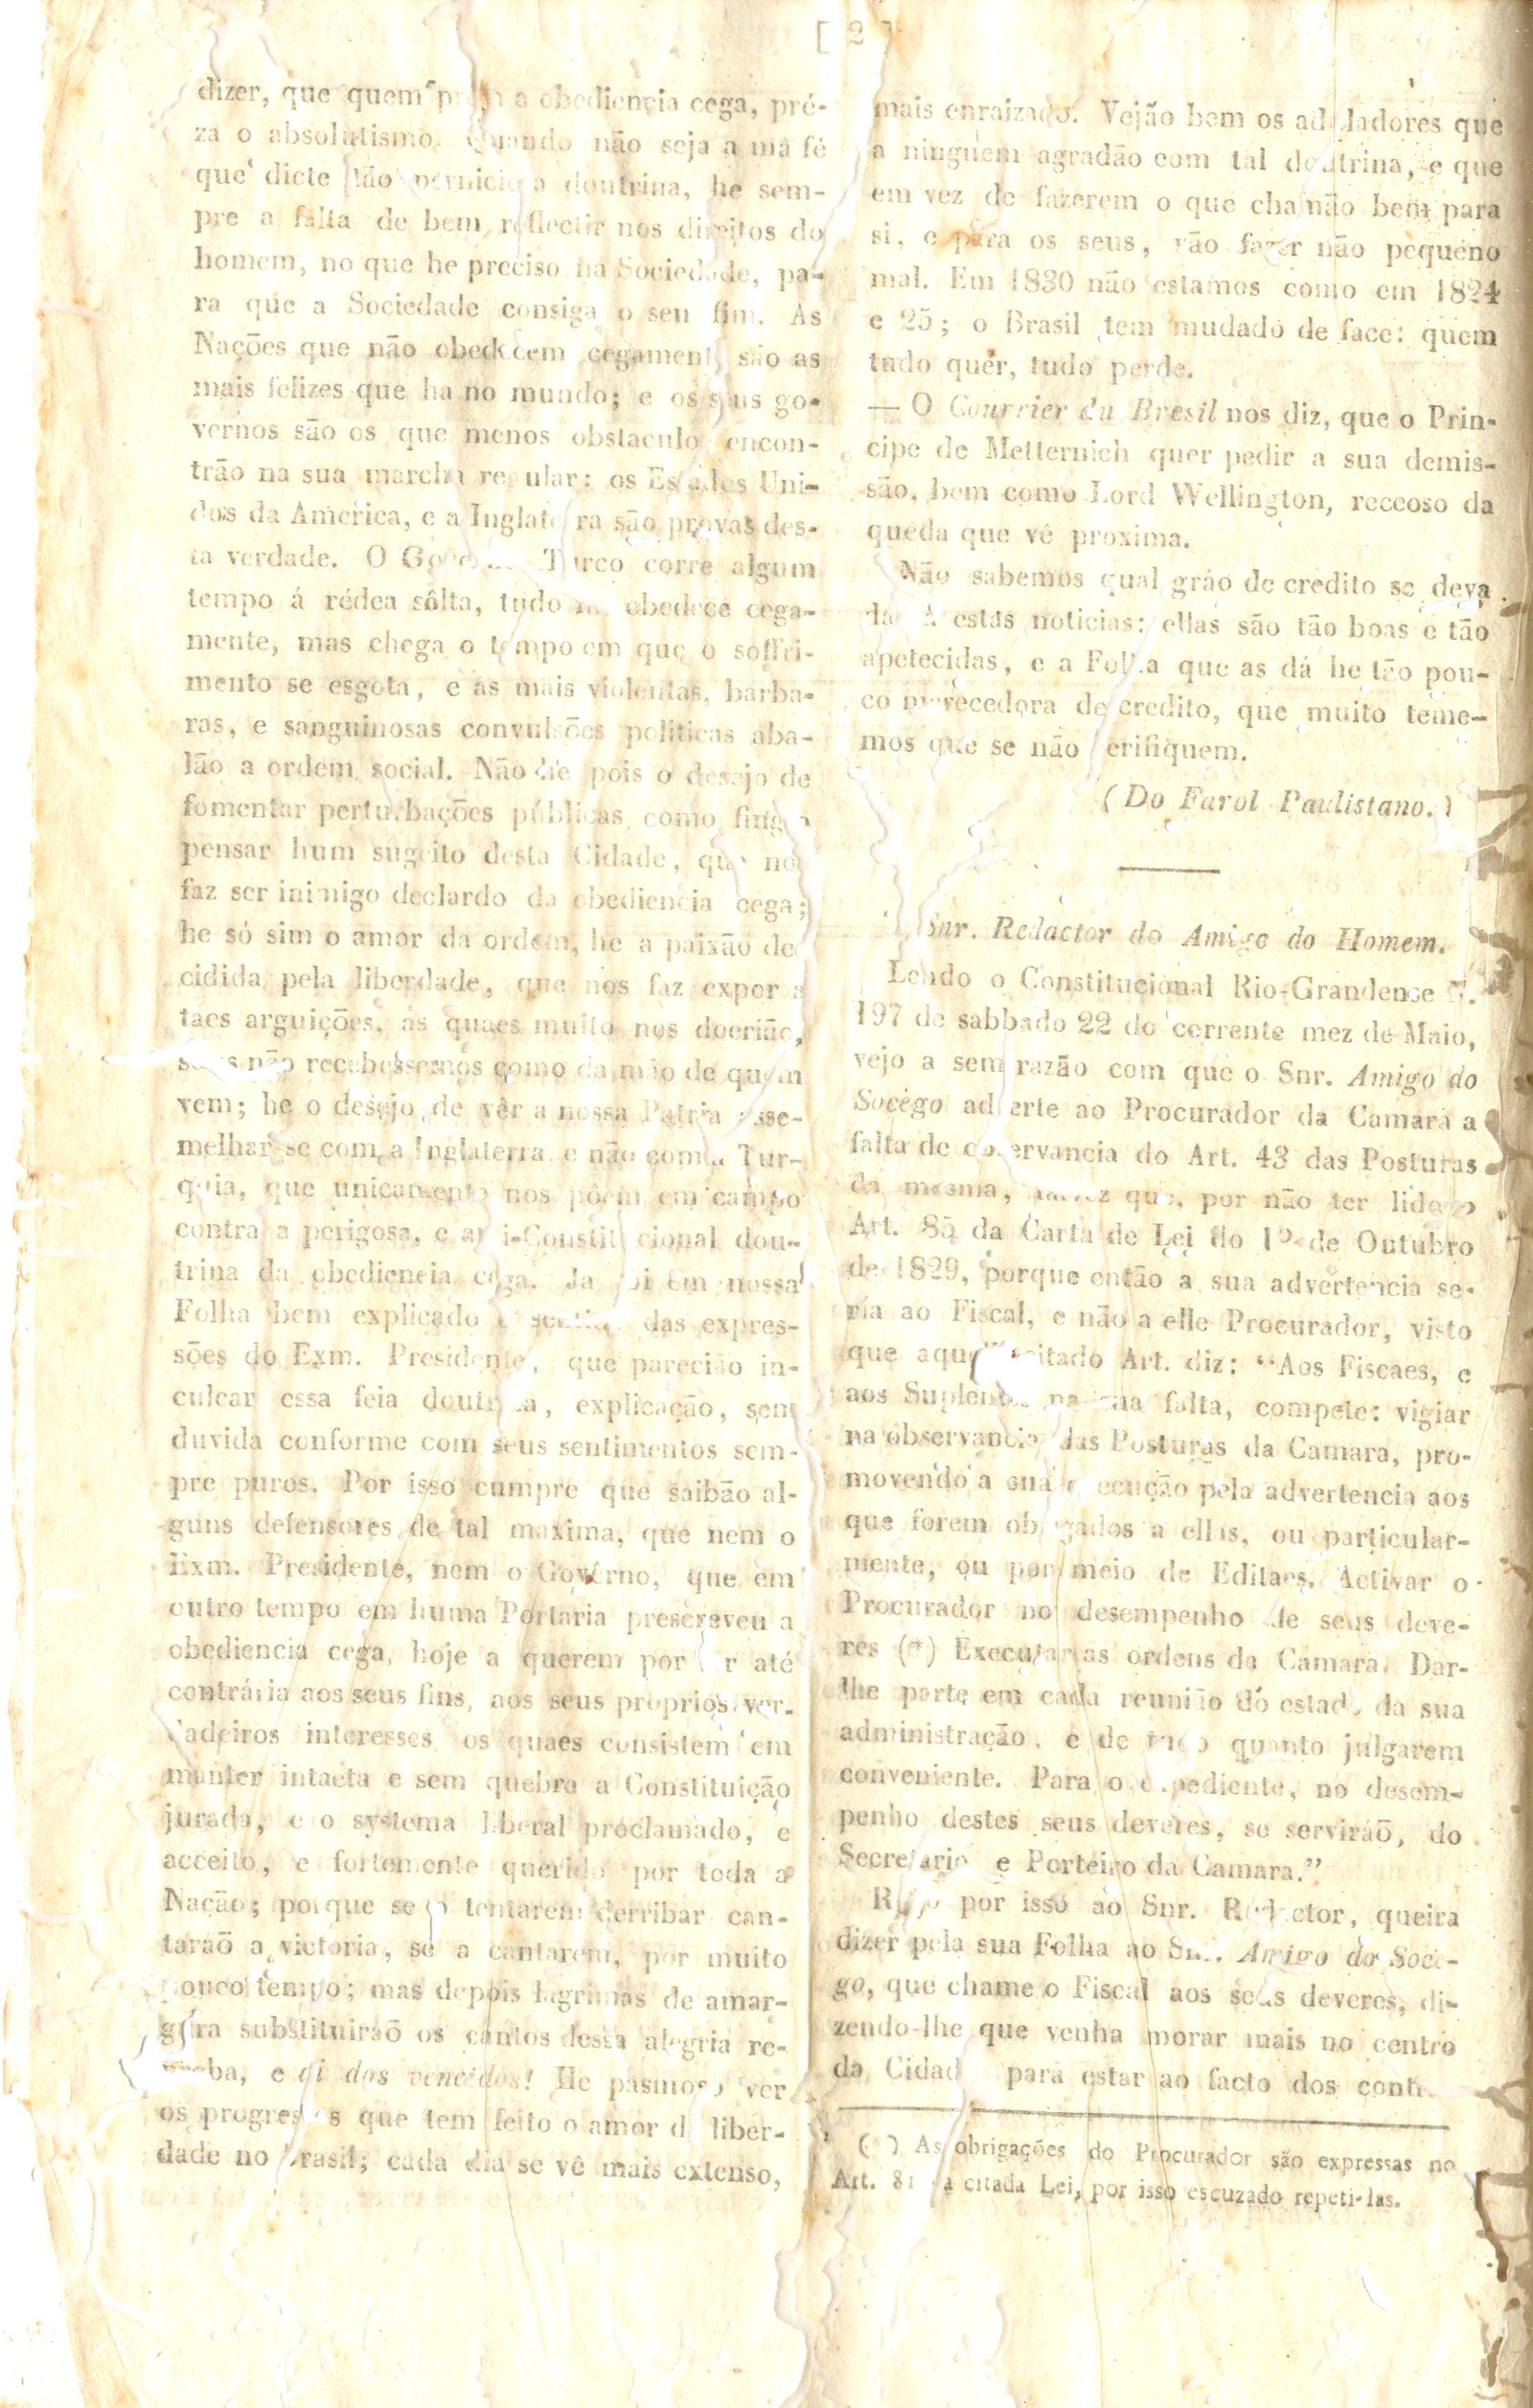 [ 2 ]
dizer, que quem a obediencia cega, pré-
za o absolutismo. Quando não seja a má fé
que dicte tão perniciosa doutrina, he sem-
pre a falta de bem reflectir nos direitos do
homem, no que he preciso na Sociedade, pa-
ra que a Sociedade consiga o seu fim. As
Nações que não obedecem cegament são as
mais felizes que ha no mundo; e os seus go-
vernos são os que menos obstaculo encon-
trão na sua marcha regular: os Estados Uni-
dos da America, e a Inglaterra são provas des-
ta verdade. O Turco corre algum
tempo á rédea sôlta, tudo obedece cega-
mente, mas chega o tempo em que o soffri-
mento se esgota, e as mais violentas, barba-
ras, e sanguinosas convulsões politicas aba-
lão a ordem social. Não he pois o desejo de
fomentar perturbações públicas, como finge
pensar hum sugeito desta Cidade, que nos
faz ser inimigo declardo da obediencia cega;
he só sim o amor da ordem, he a paixão de
cidida pela liberdade, que nos faz expor a
taes arguições, as quaes muito nos doerião,
não recebessemos como da mão de quem
vem; he o desejo de vêr a nossa Patria asse-
melhar-se com a Inglaterra e não com a Tur-
quia, que unicamente nos põem em campo
contra a perigosa, e anti-Constitucional dou-
trina da obediencia cega. Ja foi em nossa
Folha bem explicado o sentido das expres-
sões do Exm. Presidente, que parecião in-
culcar essa feia doutrina, explicação, sem
duvida conforme com seus sentimentos sem-
pre puros. Por isso cumpre que saibão al-
guns defensores de tal maxima, que nem o
Exm. Presidente, nem o Governo, que em
outro tempo em huma Portaria prescreveu a
obediencia cega, hoje a querem por até
contrária aos seus fins, aos seus proprios ver-
dadeiros interesses, os quaes consistem em
manter intacta e sem quebra a Constituição
jurada, e o systema liberal proclamado, e
acceito, e fortemente querido por toda a
Nação; porque se o tentarem derribar can-
taraõ a victoria, se a cantarem, por muito
pouco tempo; mas depois lagrimas de amar-
gura substituiráõ os cantos dessa alegria re-
ba, e ai dos vencidos! He pasmoso ver
os progressos que tem feito o amor da liber-
dade no Brasil; cada dia se vê mais extenso,
mais enraizado. Vejão bem os aduladores que
a ninguem agradão com tal doutrina, e que
em vez de fazerem o que chamão bem para
si, e para os seus, vão fazer não pequeno
mal. Em 1830 não estamos como em 1824
e 25; o Brasil tem mudado de face: quem
tudo quer, tudo perde.
— O Courrier du Bresil nos diz, que o Prin-
cipe de Metternich quer pedir a sua demis-
são, bem como Lord Wellington, receoso da
queda que vê proxima.
Não sabemos qual gráo de credito se deva
dar á estas noticias: ellas são tão boas e tão
apetecidas, e a Folha que as dá he tão pou-
co merecedora de credito, que muito teme-
mos que se não verifiquem.
(Do Farol Paulistano.)
Snr. Redactor do Amigo do Homem.
Lendo o Constitucional Rio-Grandence N.
197 de sabbado 22 do corrente mez de Maio,
vejo a sem razão com que o Snr. Amigo do
Socêgo adverte ao Procurador da Camara a
falta de observancia do Art. 43 das Posturas
da mesma, talvez que, por não ter lido o
Art. 85 da Carta de Lei do 1º de Outubro
de 1829, porque então a sua advertencia se-
ria ao Fiscal, e não a elle Procurador, visto
que aquelle citado Art. diz: “Aos Fiscaes, e
aos Suplentes na sua falta, compete: vigiar
na observancia das Posturas da Camara, pro-
movendo a sua execução pela advertencia aos
que forem obrigados a ellas, ou particular-
mente, ou por meio de Editaes. Activar o
Procurador no desempenho de seus deve-
res (*) Executar as ordens da Camara. Dar-
lhe parte em cada reunião do estado da sua
administração, e de tudo quanto julgarem
conveniente. Para o expediente, no desem-
penho destes seus deveres, se serviráõ, do
Secretario e Porteiro da Camara.”
Rogo por isso ao Snr. Redactor, queira
dizer pela sua Folha ao Snr. Amigo do Soce-
go, que chame o Fiscal aos seus deveres, di-
zendo-lhe que venha morar mais no centro
da Cidade para estar ao facto dos
(*) As obrigações do Procurador são expressas no
Art. 81 da citada Lei, por isso escuzado repeti-las.